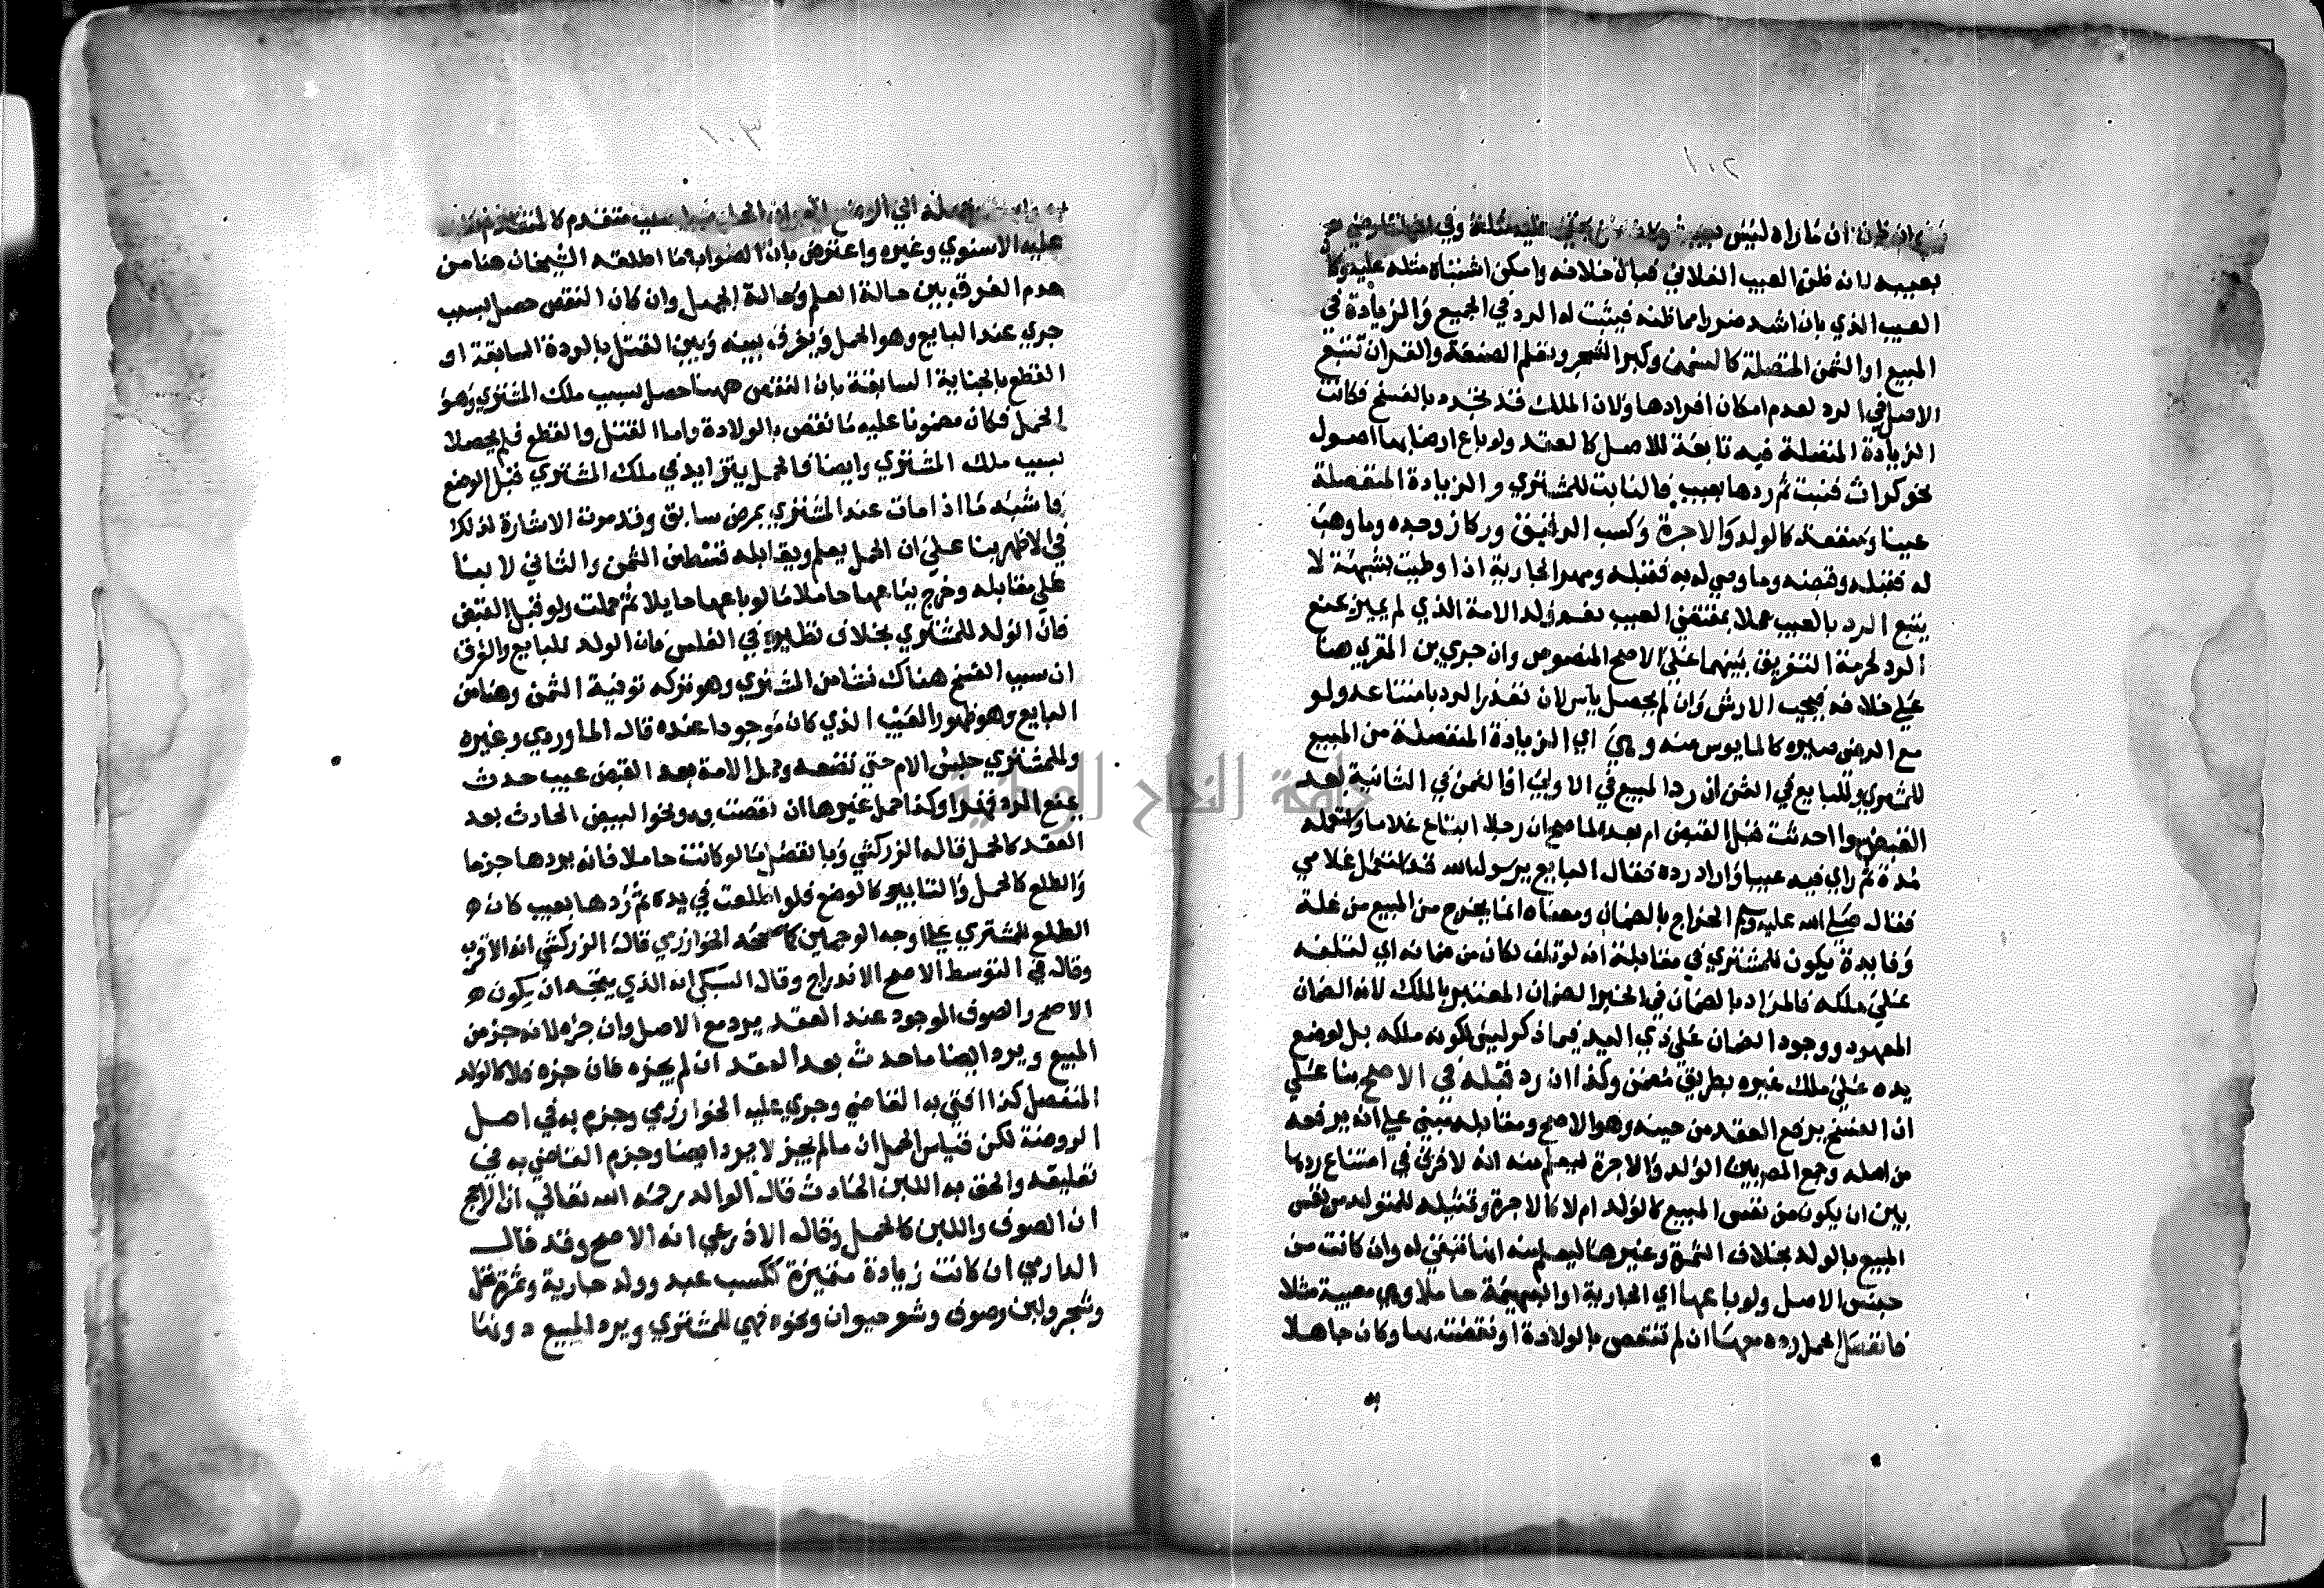 ان ما راه ليس بعيب وفي
بعيبه لانه ظن العيب الفلاني فبان خلافه وامكن اشتباه مثله عليه وكان
العيب الذي بان اشد ضررا مما ظنه فيثبت له الرد في الجميع والزيادة في
المبيع او الثمن المتصلة كالسمن وكبر الشجر وتعلم الصنعة والقران تتبع
الاصل في الرد لعدم امكان افرادها ولان الملك قد تجدد بالفسخ فكانت
الزيادة المتصلة فيه تابعة للاصل كالعقد ولو باع ارضا بها اصول
نحو كراث فنبت ثم ردها بعيب فالنابت للمشتري والزيادة المنفصلة
عينا ومنفعة كالولد والاجرة وكسب الرقيق وركاز وجده وما وهب
له فقبله وقبضه وما وصي له به فقبله ومهر الجارية اذا وطيت بشبهة لا
يتبع الرد بالعيب عملا بمقتضي العيب نعم ولد الامة الذي لم يميز يمنع
الرد لحرمة التفريق بينهما علي الاصح المنصوص وان جري بن المقري هنا
علي خلافه فيجب الارش وان لم يحصل ياس لان تعذر الرد بامتناعه ولو
مع الرضي صيره كالمايوس منه وهي اي الزيادة المنفصلة من المبيع
للمشتري وللبايع في الثمن ان رد المبيع في الاولي او الثمن في الثانية بعد
القبض سوا احدثت قبل القبض ام بعده لما صح ان رجلا ابتاع غلاما واستعمله
مدة ثم راي فيه عيبا واراد رده فقال البايع يرسول الله قد استعمل غلامي
فقال صلي الله عليه وسلم الخراج بالضمان ومعناه انما يخرج من المبيع من غلة
وفايدة يكون للمشتري في مقابلة انه لو تلف لكان من ضمانه اي لتلفه
علي ملكه فالمراد بالضمان في الخبر الضمان المعتبر بالملك لانه الضمان
المعهود ووجود الضمان علي ذي اليد فيما ذكر ليس لكونه ملكه بل لوضع
يده علي ملك غيره بطريق مضمن وكذا ان رد قبله في الاصح بنا علي
ان الفسخ يرفع العقد من حينه وهو الاصح ومقابله مبني علي انه يرفعه
من اصله وجمع المص بين الولد والاجرة ليعلم منه انه لا فرق في امتناع ردها
بين ان يكون من نفس المبيع كالولد ام لا كالاجرة وتمثيله للمتولد من نفس
المبيع بالولد بخلاف الثمرة وغيرها ليعلم منه انها تبقي له وان كانت من
جنس الاصل ولو باعها اي الجارية او البهيمة حاملا وهي معيبة مثلا
فانفصل الحمل رده معها ان لم تنقص بالولادة او نقصت بها وكان جاهلا
به
الي الوضع متقدم
عليه الاسنوي وغيره واعترض بان الصواب ما اطلقه الشيخان هنا من
عدم الفرق بين حالة العلم وحالة الجهل وان كان النقص حصل بسبب
جري عند البايع وهو الحمل ويفرق بينه وبين القتل بالردة السابقة او
القطع بالجناية السابقة بان النقص ههنا حصل بسبب ملك المشتري وهو
الحمل فكان مضمونا عليه ما نقص بالولادة واما القتل والقطع فلم يحصلا
بسبب ملك المشتري وايضا فالحمل يتزايد في ملك المشتري قبل الوضع
فاشبه ما اذا مات عند المشتري بمرض سابق وقد مرت الاشارة لذلك
في الاظهر بنا علي ان الحمل يعلم ويقابله قسط من الثمن والثاني لا بنا
علي مقابله وخرج ببناعها حاملا ما لو باعها حايلا ثم حملت ولو قبل القبض
فان الولد للمشتري بخلاف نظيره في الفلس فان الولد للبايع والفرق
ان سبب الفسخ هناك نشا من المشتري وهو تركه توفية الثمن وهنا من
البايع وهو ظهور العيب الذي كان موجودا عنده قاله الماوردي وغيره
وللمشتري حبس الام حتي تضعه وحمل الامة بعد القبض عيب حدث
يمنع الرد قهرا وكذا حمل غيرها ان نقصت به ونحو البيض الحادث بعد
العقد كالحمل قاله الزركشي وبانفصل ما لو كانت حاملا فانه يردها جزما
والطلع كالحمل والتابير كالوضع فلو اطلعت في يده ثم ردها بعيب كان
الطلع للمشتري علي اوجه الوجهين كما صححه الخوارزمي قال الزركشي انه الاقرب
وقال في التوسط الاصح الاندراج وقال السبكي انه الذي يتجه ان يكون هو
الاصح والصوف الموجود عند العقد يرد مع الاصل وان جزه لانه جزمن
المبيع ويرد ايضا ما حدث بعد العقد ان لم يجزه فان جزه فلا كالولد
المنفصل كذا افتي به القاضي وجري عليه الخوارزمي وجزم به في اصل
الروضة لكن قياس الحمل ان ما لم يجز لا يرد ايضا وجزم القاضي به في
تعليقه والحق به اللبن الحادث قال الوالد رحمه الله تعالي ان الراجح
ان الصوف واللبن كالحمل وقال الاذرعي انه الاصح وقد قال
الدارمي ان كانت زيادة متميزة ككسب عبد وولد جارية وثمرة نخل
وشجر ولبن وصوف وشعر حيوان ونحوه فهي للمشتري ويرد المبيع دونها
جامعة النجاح الوطنية